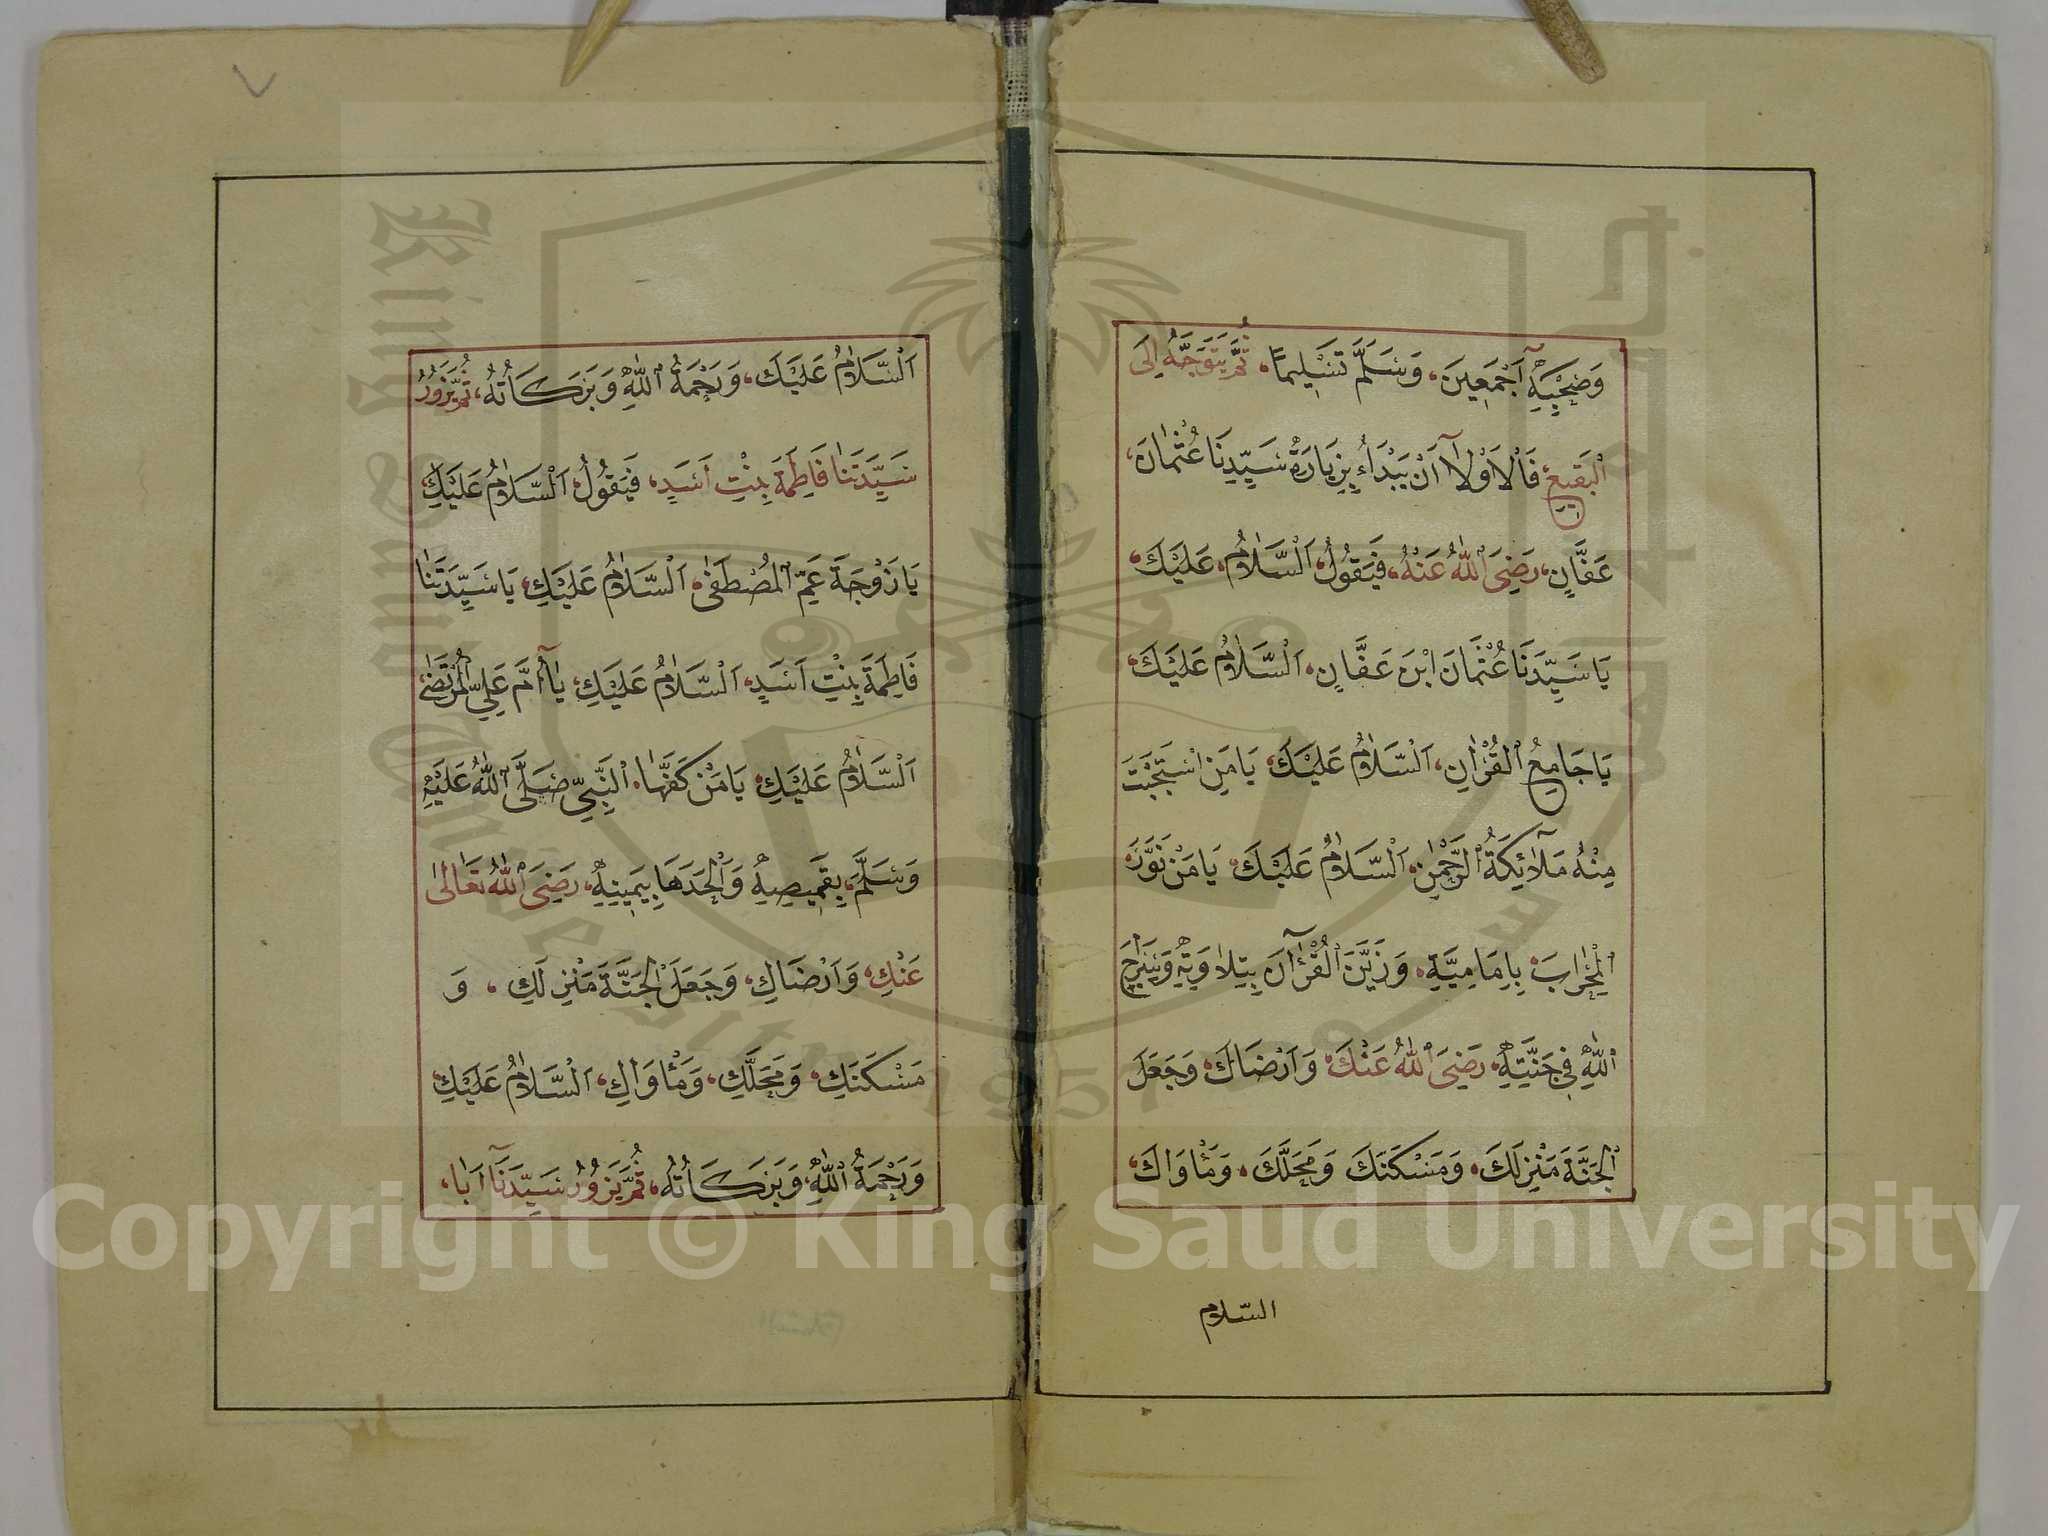 وَصَحْبِهِ اَجْمَعِينَ، وَسَلَّمَ تَسْلِيمًا، ثُمَّ يَتَوَجَّهُ اِلَى
الْبَقِيعِ، فَالْاَوْلَا اَنْ يَبْدَاءَ بِزِيَارَةِ سَيِّدِنَا عُثْمَانَ،
عَفَّانٍ، رَضِىَ اللّٰهُ عَنْهُ، فَيَقُولُ، اَلسَّلَامُ، عَلَيْكَ،
يَا سَيِّدَنَا عُثْمَانَ ابْنَ عَفَّانٍ، اَلسَّلَامُ عَلَيْكَ،
يَا جَامِعُ الْقُرْاٰنِ، اَلسَّلَامُ عَلَيْكَ، يَا مَنِ اسْتَحْيَتَ
مِنْهُ مَلَائِكَةُ الرَّحْمٰنِ، اَلسَّلَامُ عَلَيْكَ، يَا مَنْ نَوَّرَ،
الْمِحْرَابَ، بِاِمَامِيَّةِ، وَزَيَّنَ الْقُرْآنَ بِتِلَاوَتِهِ، وَسِرَاجَ
اللّٰهِ فِى جَنَّتِهِ، رَضِىَ اللّٰهُ عَنْكَ، وَاَرْضَاكَ، وَجَعَلَ
الْجَنَّةَ مَنْزِلَكَ، وَمَسْكَنَكَ وَمَحَلَّكَ، وَمَثْاوَاكَ،
السّلام
اَلسَّلَامُ عَلَيْكَ، وَرَحْمَةُ اللّٰهِ وَبَرَكَاتُهُ، ثُمَّ يَزُورُ
سَيِّدَتَنَا فَاطِمَةَ بِنْتِ اَسَدٍ، فَيَقُولُ، اَلسَّلَامُ عَلَيْكِ،
يَا زَوْجَةَ عَمِّ الْمُصْطَفٰى، اَلسَّلَامُ عَلَيْكِ، يَا سَيِّدَتَنَا
فَاطِمَةَ بِنْتِ اَسَدٍ، اَلسَّلَامُ عَلَيْكِ، يَا اُمَّ عَلِيِّ الْمُرْتَضٰى
اَلسَّلَامُ عَلَيْكِ، يَا مَنْ كَفَّنَهَا، النَّبِيِّ صَلَّى اللّٰهُ عَلَيْهِ
وَسَلَّمَ، بِقَمِيصِهِ وَاَلْحَدَهَا بِيَمِينِهِ، رَضِىَ اللّٰهُ تَعَالٰى
عَنْكِ، وَاَرْضَاكِ، وَجَعَلَ الْجَنَّةَ مَنْزِلَكِ، وَ
مَسْكَنَكِ، وَمَحَلَّكِ، وَمَثْاوَاكِ، اَلسَّلَامُ عَلَيْكِ،
وَرَحْمَةُ اللّٰهِ، وَبَرَكَاتُهُ، ثُمَّ يَزُورُ سَيِّدَنَا اَبَا،
Copyright © King Saud University
King Saud University
1957